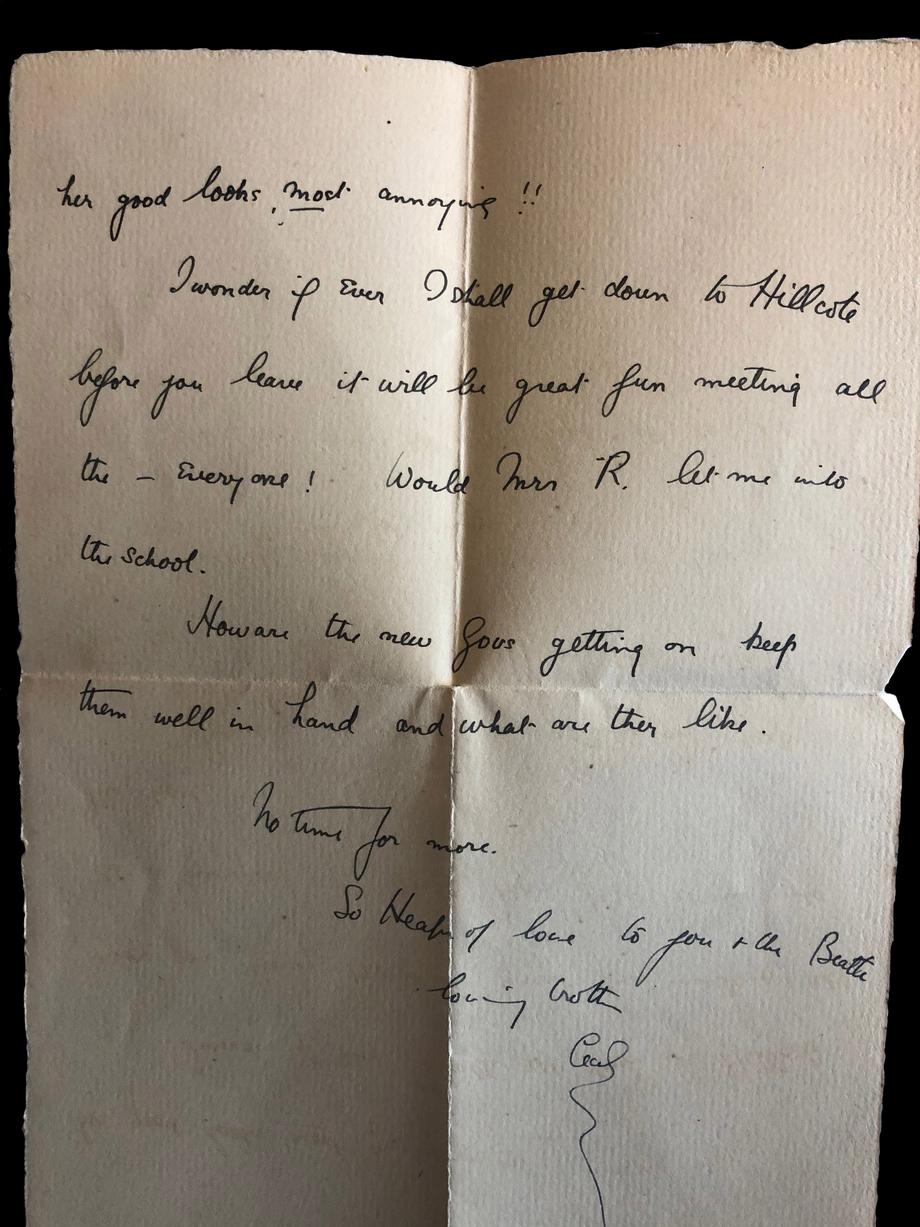 her good looks, most annoying !!
I wonder if Ever I shall get down to Hillcote
before you leave it will be great fun meeting all
the – Everyone ! Would Mrs R. let me into
the school.
How are the new Govs getting on keep
them well in hand and what are ther like .
No time for more.
So Heaps of love to you + the
loving brother
Cecil